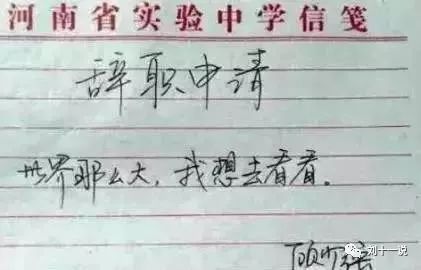 河南省实验中学信笺
辞职申请
世界那么大，我想去看看。
顾少强
刘十一说